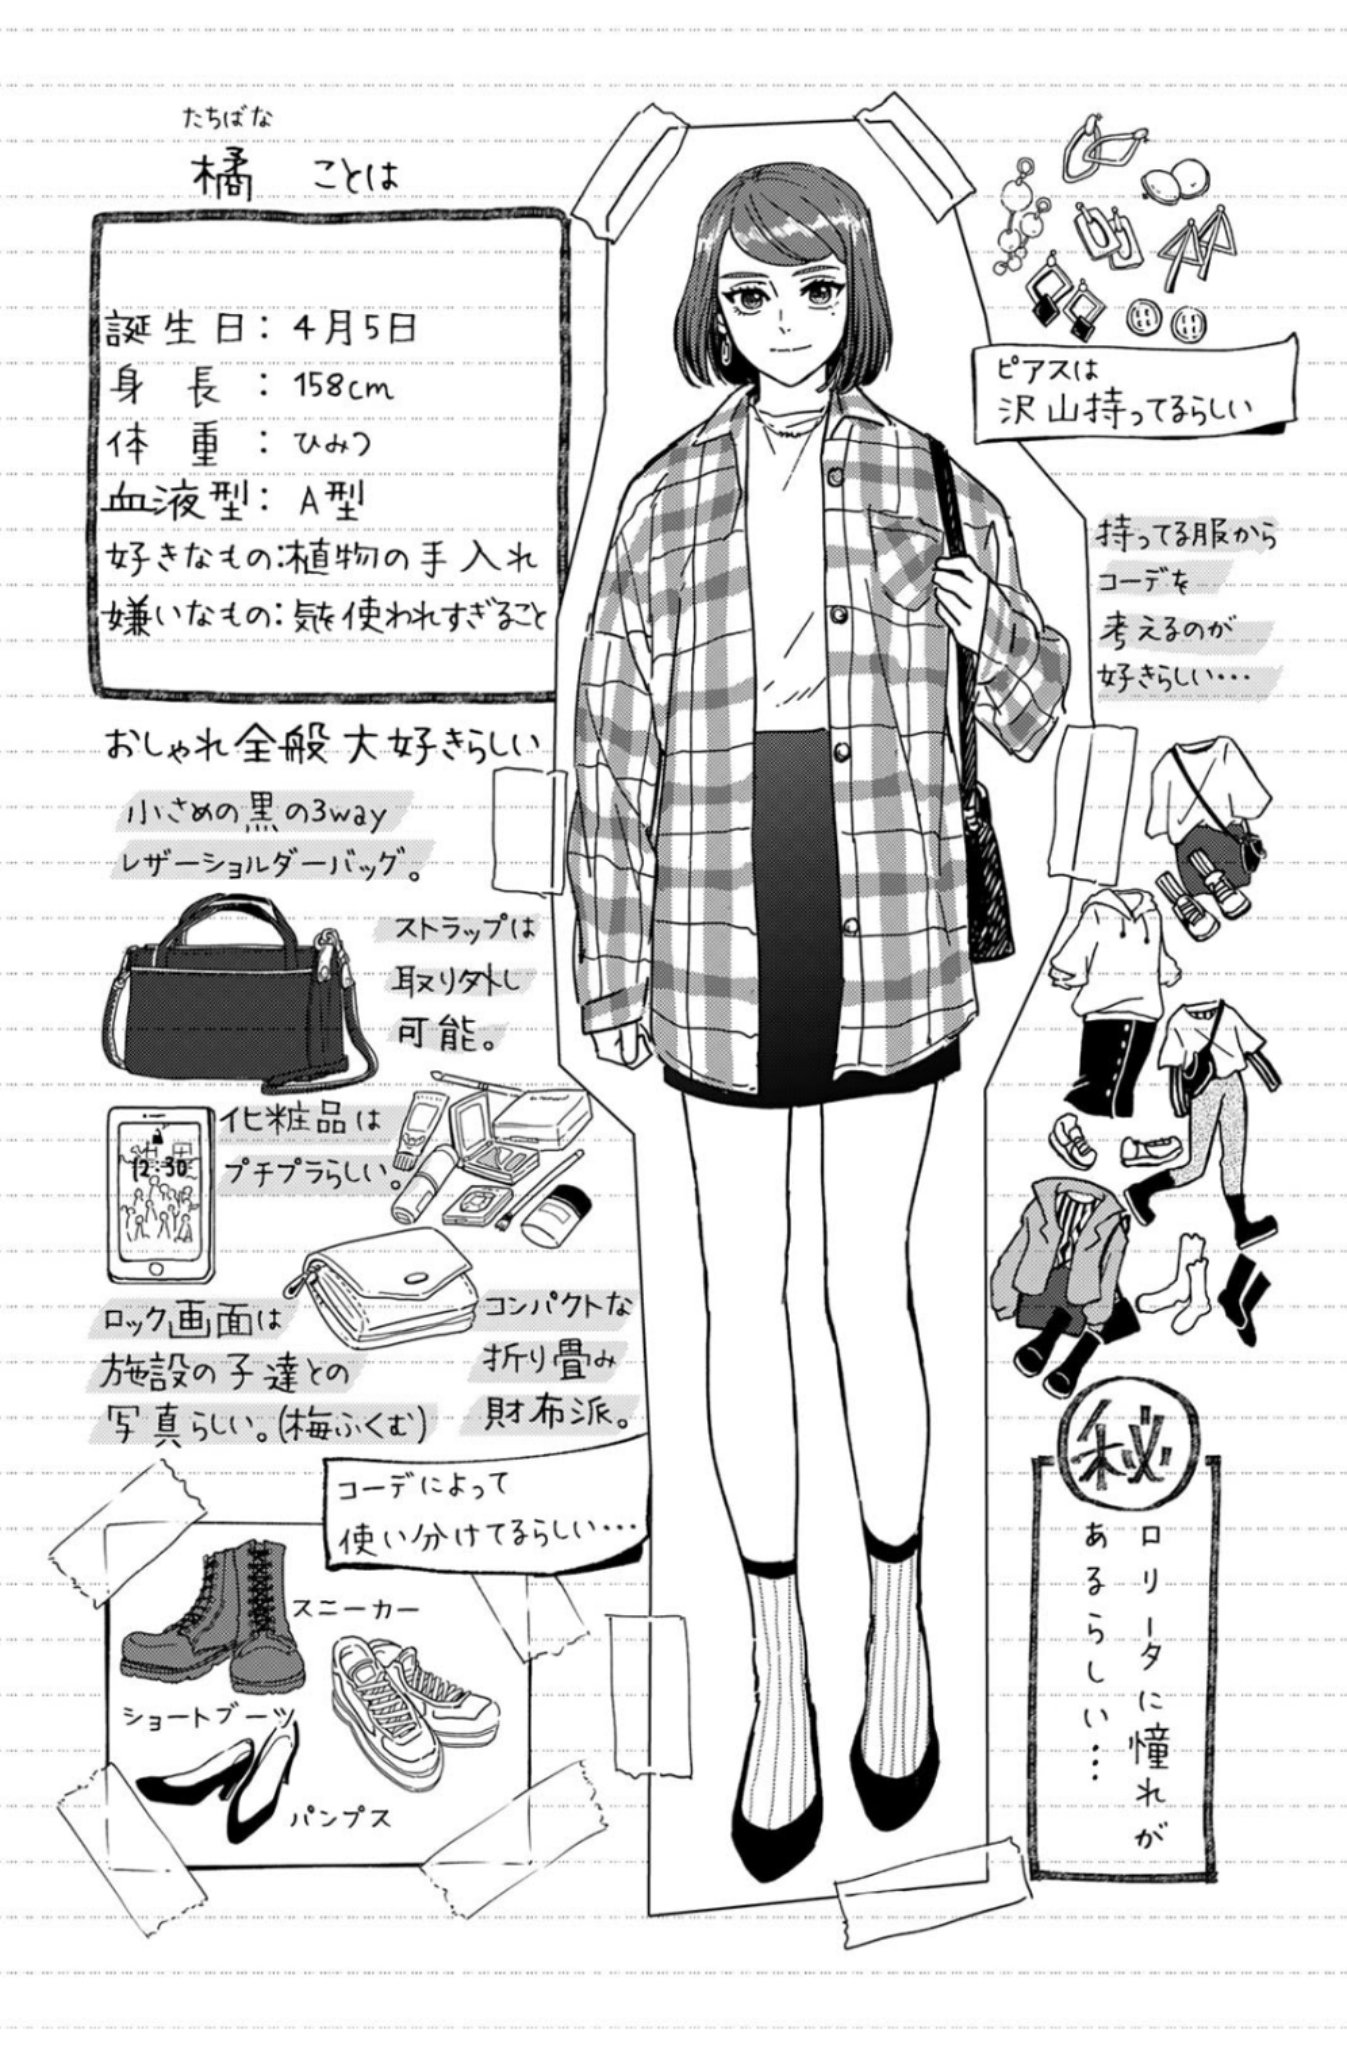 たちばな
橘 ことは
誕生日：4月5日
身長：158cm
体重：ひみつ
血液型：A型
好きなもの：植物の手入れ
嫌いなもの：気を使われすぎること
おしゃれ全般大好きらしい
小さめの黒の3way
レザーショルダーバッグ。
ストラップは
取り外し
可能。
化粧品は
プチプラらしい。
12:30
ロック画面は
施設の子達との
写真らしい。(梅ふくむ)
コンパクトな
折り畳み
財布派。
コーデによって
使い分けてるらしい…
スニーカー
ショートブーツ
パンプス
ピアスは
沢山持ってるらしい
持ってる服から
コーデを
考えるのが
好きらしい…
秘
ロリータに憧れが
あるらしい…